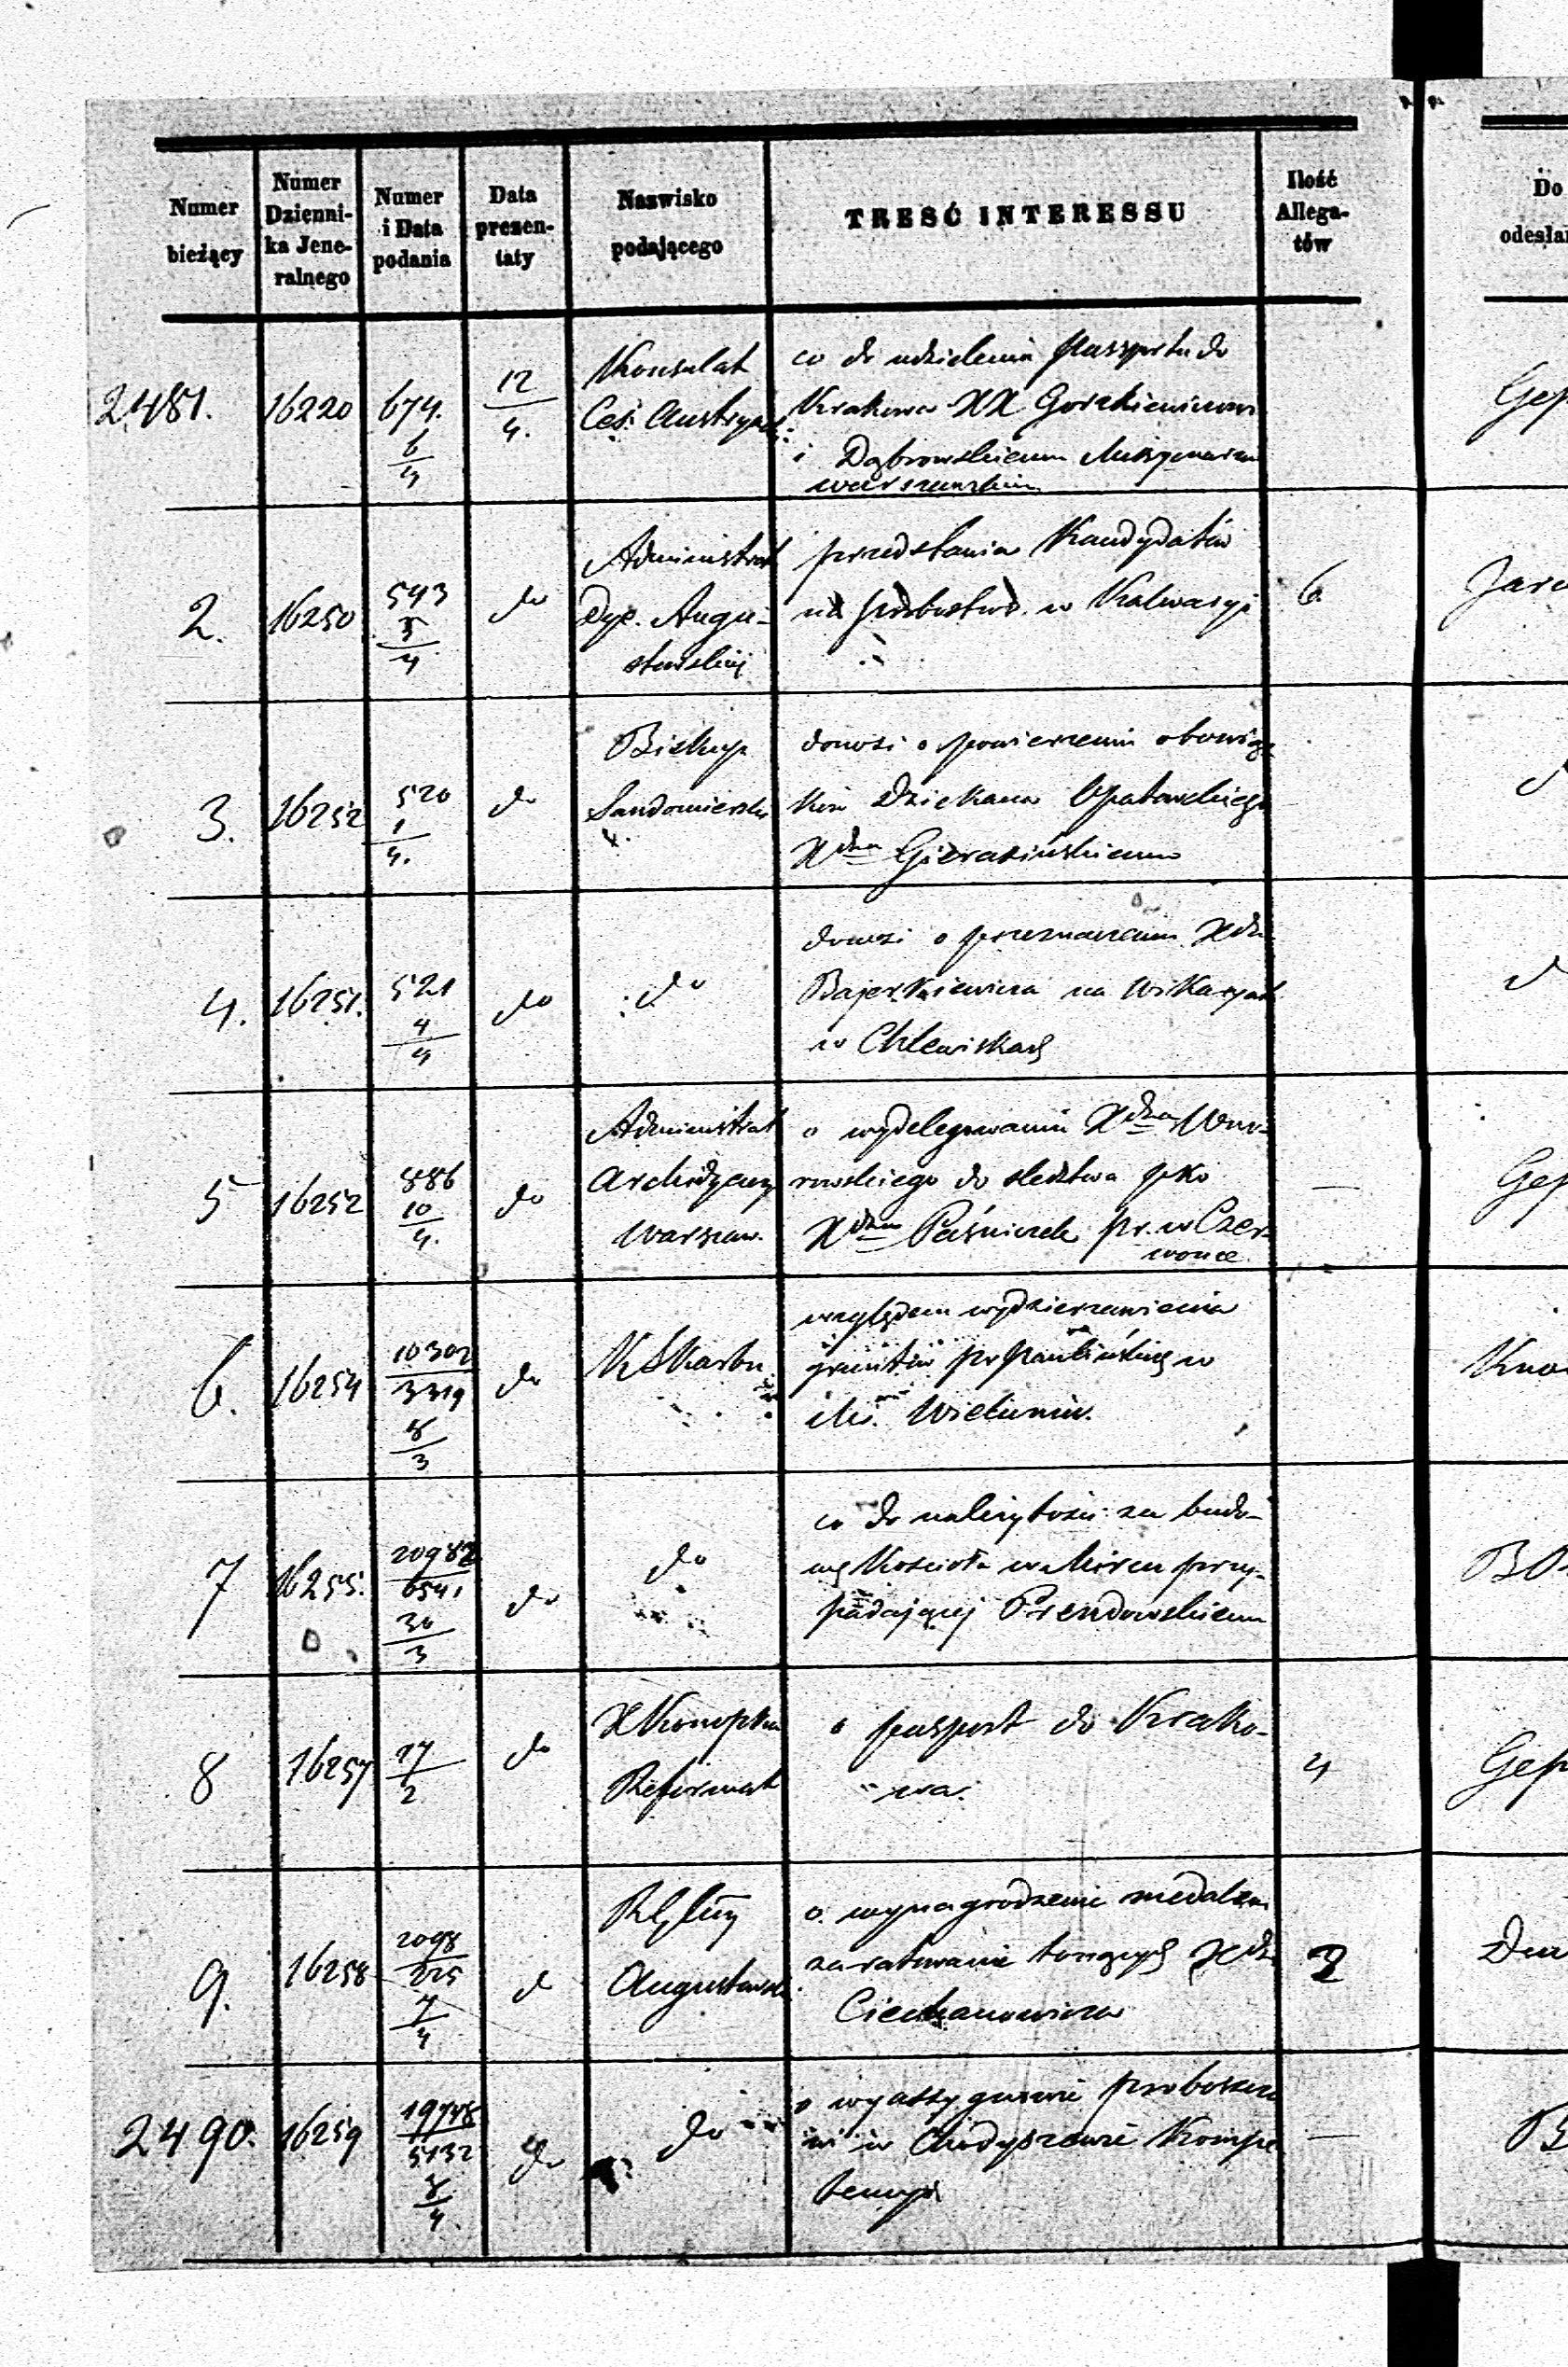 Numer bieżący | Numer Dzienni- ka Jene- ralnego | Numer i Data podania | Data prezen- taty | Nazwisko podającego | TREŚĆ INTERESSU | Ilość Allega- tów | Do odesła
2481. | 16220 | 674. 6/4 | 12/4. | Konsulat Ces: Austryack: | co do udzielenia passportu do
Krakowa XX Gorzkiewiczowi
i Dąbrowskiemu Missyonarzom
warszawskim | Gep
2. | 16250 | 543 5/4 | do | Administrat Dyec. Augu- stowskiej | przedstawia Kandydatów
na probostwo w Kalwaryi | 6. | Jaro
3. | 16252 | 520 1/4. | do | Biskup Sandomierski | donosi o powierzeniu obowiąz
ków Dziekana Opatowskiego
Xdzu Gierasińskiemu
4. | 16251. | 521 4/4 | do | do | donosi o przeznaczeniu Xdza
Bajerkiewicza na Wikaryat
w Chlewiskach
5 | 16252 | 886 10/4. | do | Administrat Archidyecezyi Warszaw. | o wydelegowaniu Xdza
rowskiego do śledztwa ppko
Xdzu Paśniczek pr. w Czer-
wonce | — | Gep
6. | 16254 | 10302/3319 8/3 | do | K Skarbu | względem wydzierzawienia
gruntów po Paulińskich w
Wieluniu. | Kno
7 | 16255. | 20982/6541 30/3 | do | do | co do należytości za budo-
wę Kościoła w Mircu przy-
padającej Prendowskiemu | BO
8 | 16257 | 27/2 | do | X Konopka Reformat | o pasport do Krako-
wa. | 4 | Gep
9. | 16258 | 2098/225 7/4 | do | Augustowski | o wynagrodzenie medalem
za ratowanie tonących Xdza
Ciechanowicza | 2
2490. | 16259 | 5132 8/4. | do | do | o wyassygnowanie proboszczo
wi w Chodyszewie Kompe
tencyi | — | B